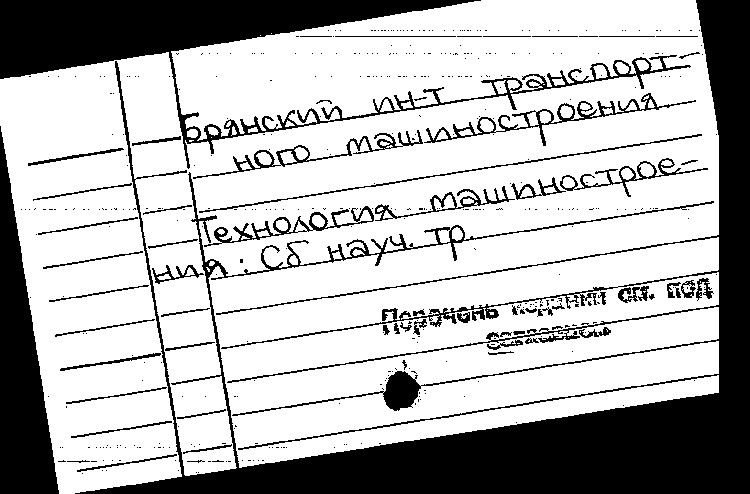 Брянский ин-т транспорт-
ного машиностроения.
Технология машинострое-
ния: Сб науч. тр.
Перечень изданий см. под